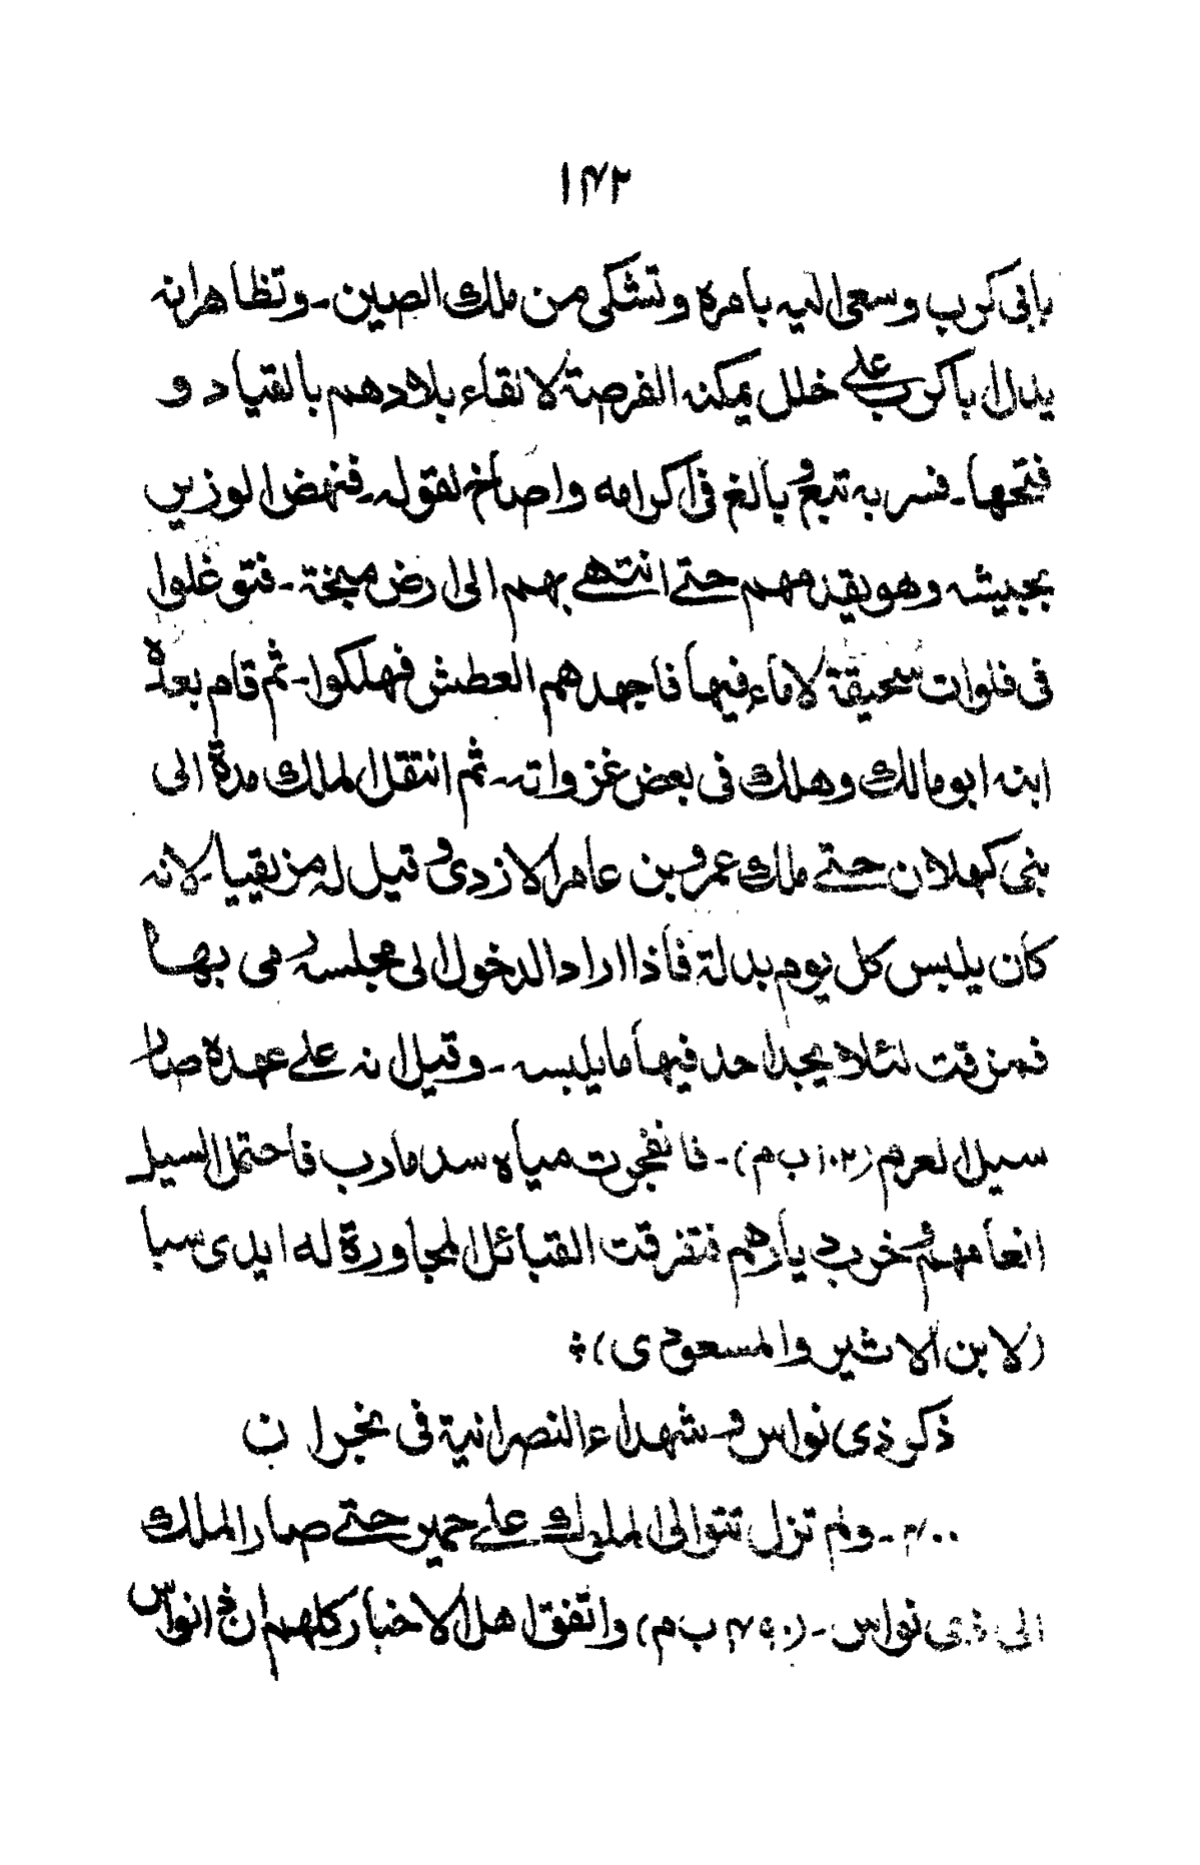 ۱۴۲
بابی کرب وسعی الیہ بامرہ وتشکی من ملك الصین ـ وتظاهر انہ
یدل ابا کرب علی خلل یمکنہ الفرصة لالقاء بلادهم بالقیاد و
فتحها ـ فسر بہ تبع وبالغ فی اکرامه واصاخ لقولہ ـ فنهض الوزیر
بجیشہ وهو یقدمهم حتی انتهے بهم الی ارض سبخة ـ فتوغلوا
فی فلوات سحیقة لاماء فیها فاجهدهم العطش فهلکوا ـ ثم قام بعدہ
ابنہ ابو مالك وهلك فی بعض غزواتہ ـ ثم انتقل الملك مدة الی
بنی کهلان حتے ملك عمرو بن عامر الازدی وقیل لہ مزیقیا لانہ
کان یلبس کل یوم بدلة فاذا اراد الدخول الی مجلسہ رمی بها
فمزقت لئلا یجد احد فیها ما یلبسہ ـ وقیل انہ علے عهدہ صار
سیل العرم (۱۰۲ ب م) ـ فانفجرت میاہ سد مارب فاحتمل السیل
انعامهم وخرب دیارهم فتفرقت القبائل المجاورة له ایدی سبا
(لابن الاثیر والمسعودی) ÷
ذکر ذی نواس وشهداء النصرانیة فی نجران
۴۰۰ ـ ولم تزل تتوالی الملوك علے حمیر حتے صار الملك
الی ذی نواس ـ (۴۹۰ ب م) واتفق اهل الاخبار کلهم ان ذا نواس